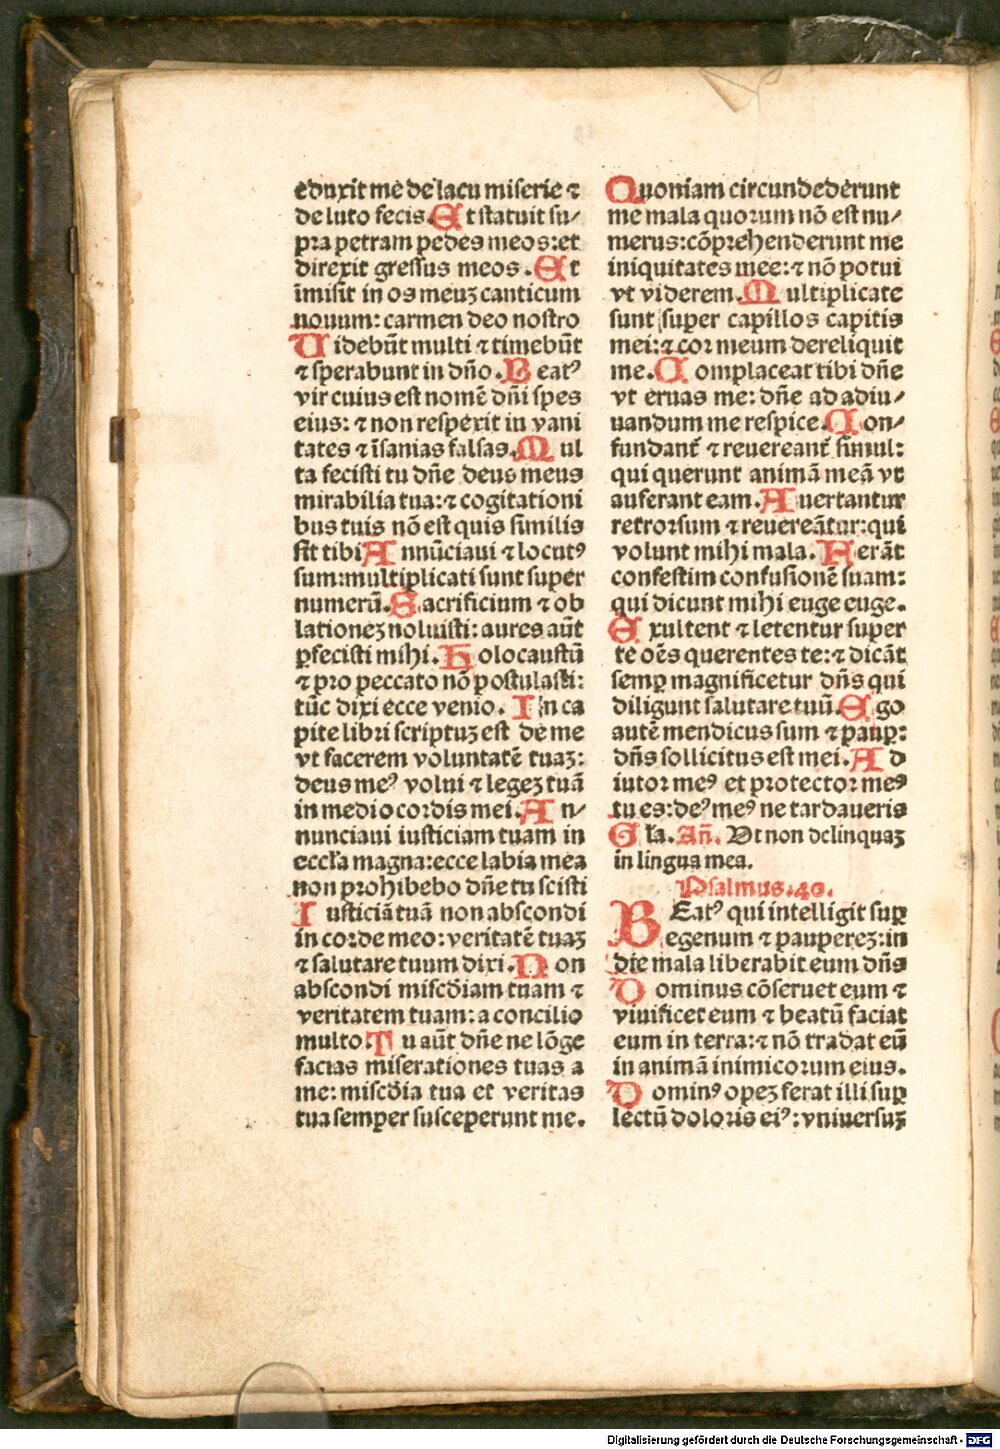 eduxit me de lacu miserie ⁊
de luto fecis. Et statuit su/
pra petram pedes meos: et
direxit gressus meos. Et
īmisit in os meuꝫ canticum
nouum: carmen deo nostro
Uidebūt multi ⁊ timebūt
⁊ sperabunt in dño. Beatꝰ
vir cuius est nomē dñi spes
eius: ⁊ non respexit in vani
tates ⁊ īsanias falsas. Mul
ta fecisti tu dñe deus meus
mirabilia tua: ⁊ cogitationi
bus tuis nō est quis similis
sit tibi Annūciaui ⁊ locutꝰ
sum: multiplicati sunt super
numerū. Sacrificium ⁊ ob
lationeꝫ noluisti: aures aūt
ꝑfecisti mihi. Holocaustū
⁊ pro peccato nō postulasti:
tūc dixi ecce venio. In ca
pite libri scriptuꝫ est de me
vt facerem voluntatē tuaꝫ:
deus meꝰ volui ⁊ legeꝫ tuā
in medio cordis mei. An/
nunciaui iusticiam tuam in
eccl'a magna: ecce labia mea
non prohibebo dñe tu scisti
Iusticiā tuā non abscondi
in corde meo: veritatē tuaꝫ
⁊ salutare tuum dixi. Non
abscondi misc̄diam tuam ⁊
veritatem tuam: a concilio
multo. Tu aūt dñe ne lōge
facias miserationes tuas a
me: misc̄dia tua et veritas
tua semper susceperunt me.
Quoniam circundederunt
me mala quorum nō est nu/
merus: cōprehenderunt me
iniquitates mee: ⁊ nō potui
vt viderem. Multiplicate
sunt super capillos capitis
mei: ⁊ cor meum dereliquit
me. Complaceat tibi dñe
vt eruas me: dñe ad adiu/
uandum me respice. Con/
fundant̄ ⁊ reuereant̄ simul:
qui querunt animā meā vt
auferant eam. Auertantur
retrorsum ⁊ reuereātur: qui
volunt mihi mala. Ferāt
confestim confusionē suam:
qui dicunt mihi euge euge.
Exultent ⁊ letentur super
te oēs querentes te: ⁊ dicāt
semꝑ magnificetur dñs qui
diligunt salutare tuū. Ego
autē mendicus sum ⁊ pauꝑ:
dñs sollicitus est mei. Ad
iutor meꝰ et protector meꝰ
tu es: deꝰ meꝰ ne tardaueris
Gl'a. Añ. Ut non delinquaꝫ
in lingua mea.
Psalmus. 40.
BEatꝰ qui intelligit suꝑ
egenum ⁊ paupereꝫ: in
die mala liberabit eum dñs
Dominus cōseruet eum ⁊
viuificet eum ⁊ beatū faciat
eum in terra: ⁊ nō tradat eū
in animā inimicorum eius.
Dominꝰ opeꝫ ferat illi suꝑ
lectū doloris eiꝰ: vniuersuꝫ
Digitalisierung gefördert durch die Deutsche Forschungsgemeinschaft - DFG